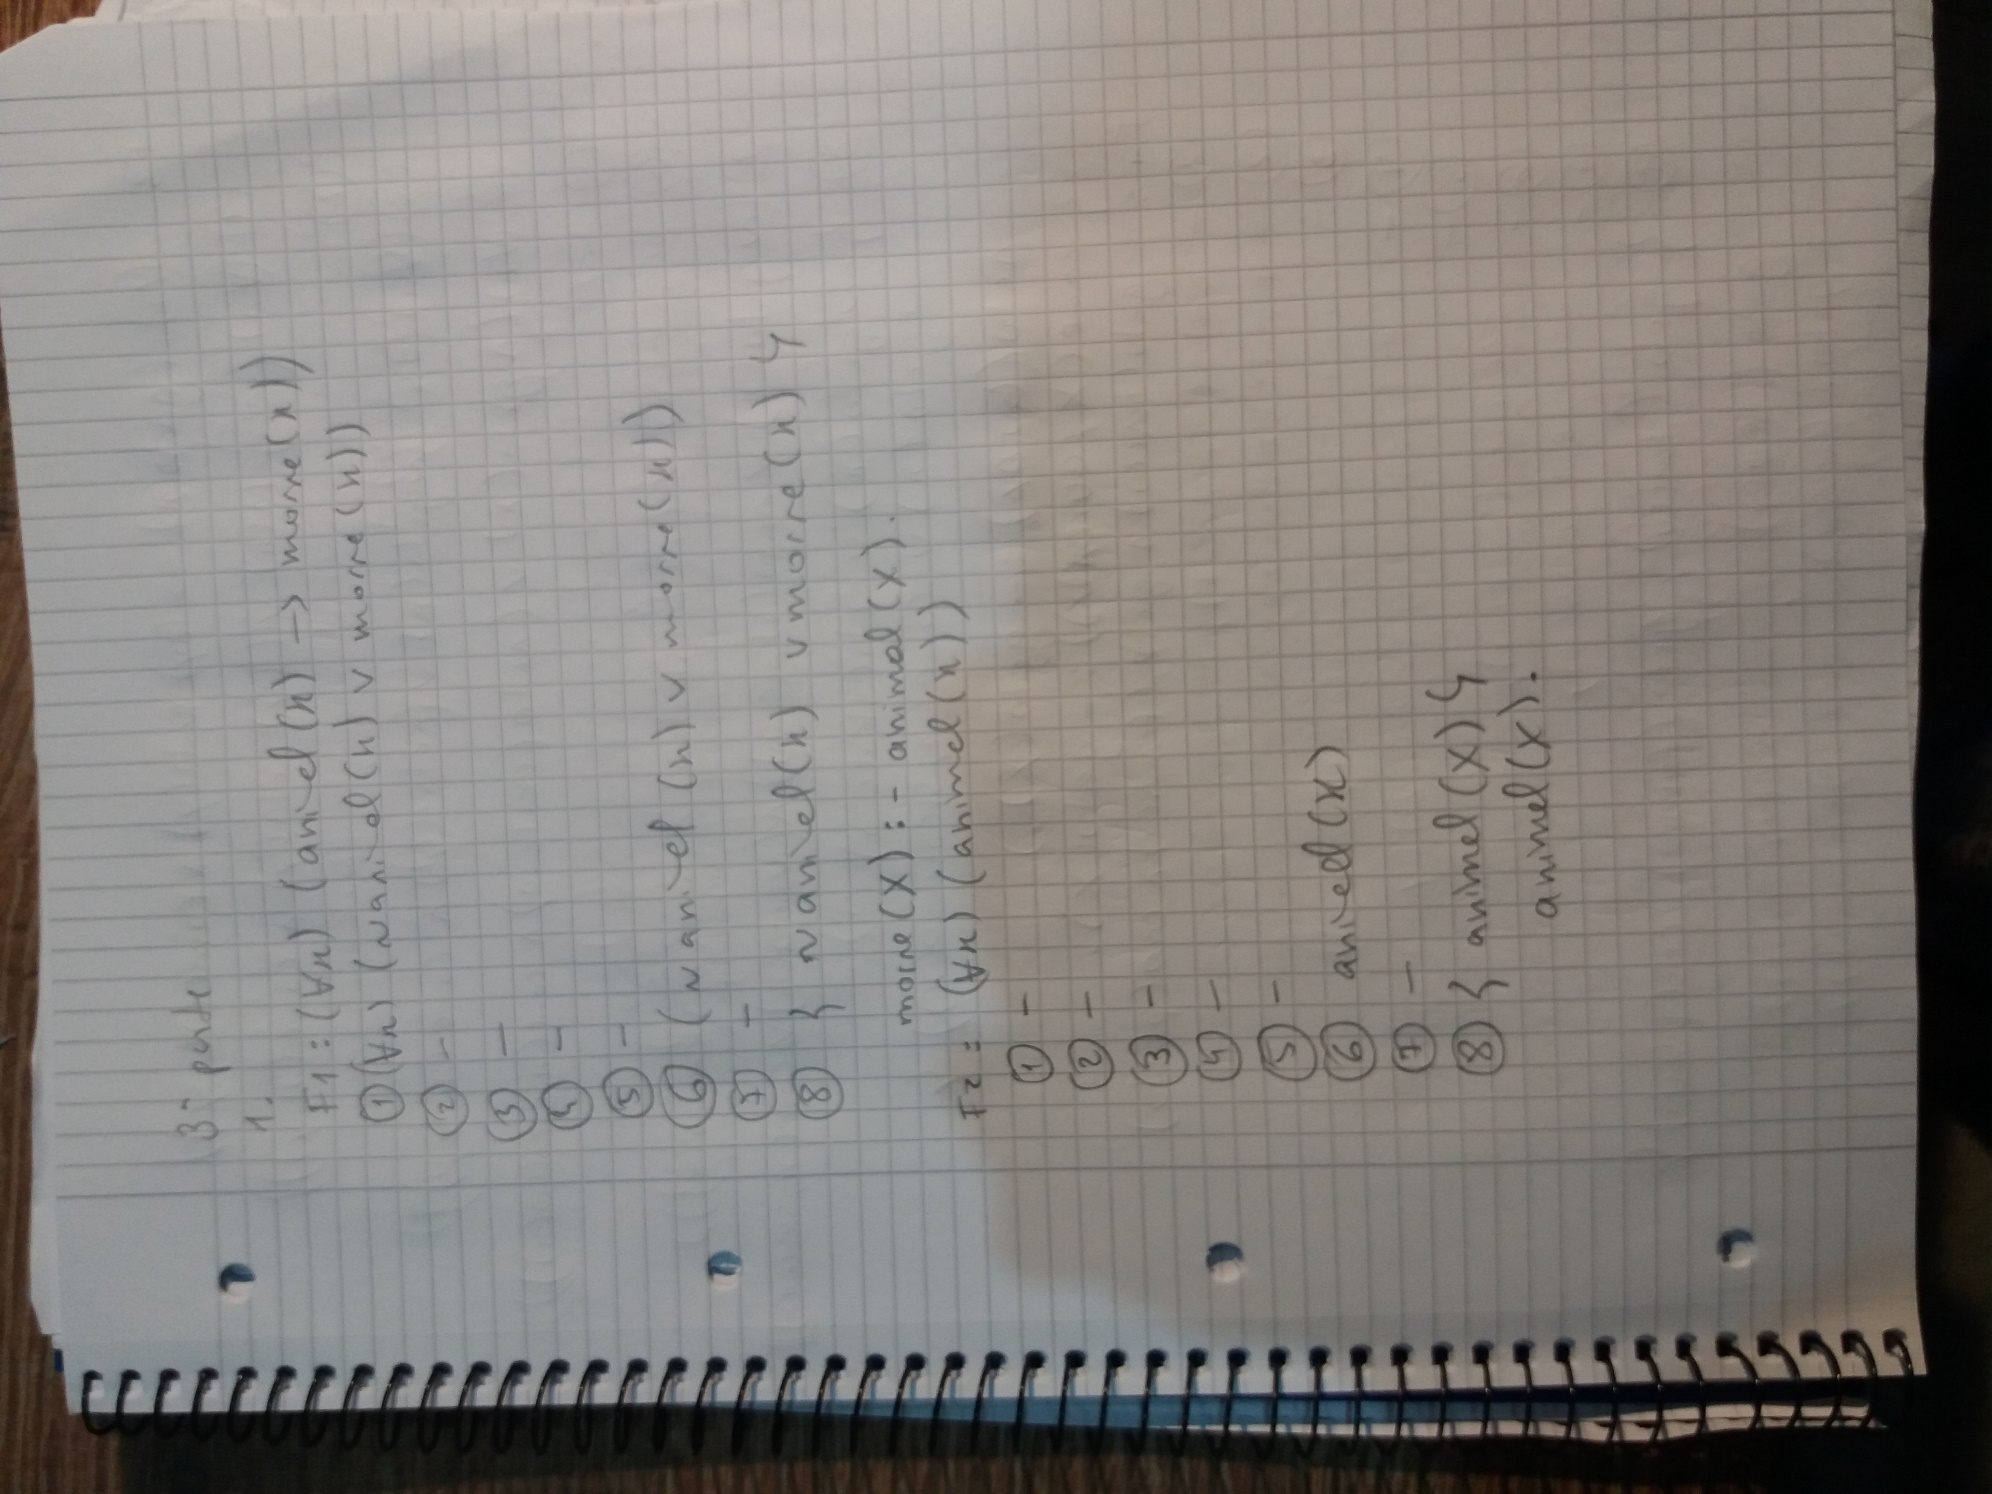 3ª parte
1.
F1: (∀x) (animal(x) → morre(x))
① (∀x) (~animal(x) ∨ morre(x))
② -
③ -
④ -
⑤ -
⑥ (~animal(x) ∨ morre(x))
⑦ -
⑧ { ~animal(x) ∨ morre(x) }
morre(X) :- animal(X).
F2: (∀x) (animal(x))
① -
② -
③ -
④ -
⑤ -
⑥ animal(x)
⑦ -
⑧ { animal(X) }
animal(X).